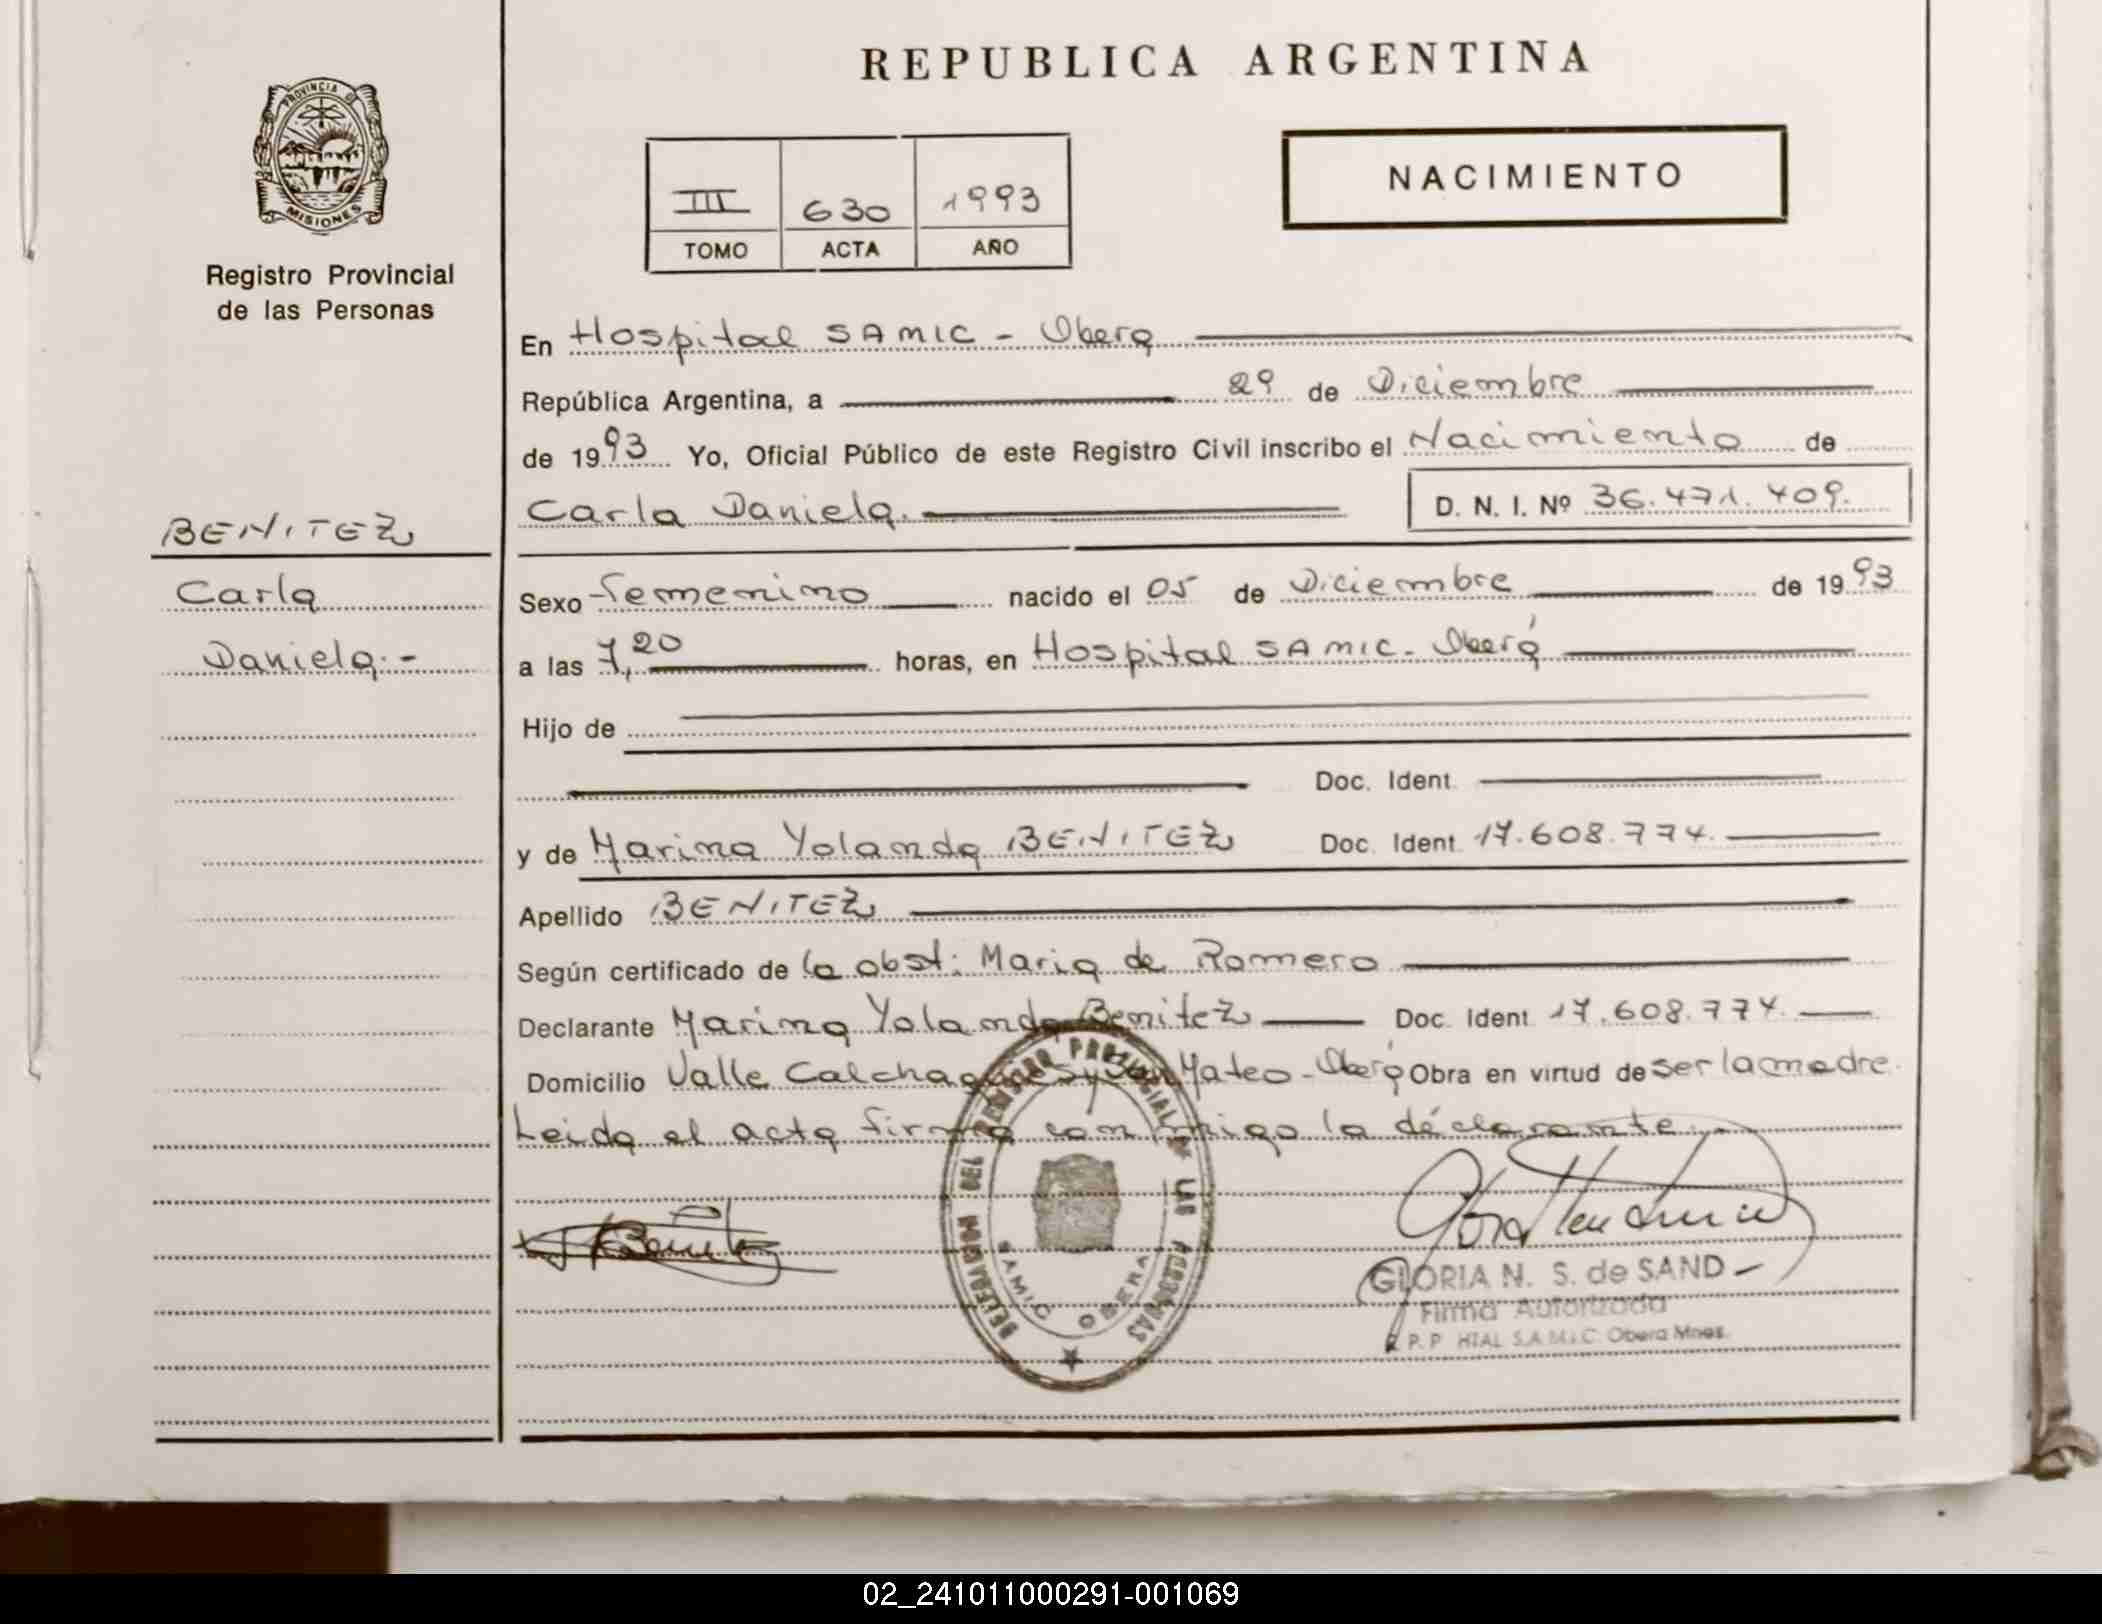 REPUBLICA ARGENTINA
PROVINCIA DE
MISIONES
Registro Provincial
de las Personas
III 630 1993
TOMO ACTA AÑO
NACIMIENTO
En Hospital SAMIC - Oberá
República Argentina, a 29 de Diciembre
de 1993 Yo, Oficial Público de este Registro Civil inscribo el Nacimiento de
Carla Daniela. D. N. I. Nº 36.471.409.
BENITEZ
Carla
Daniela.-
Sexo Femenino nacido el 05 de Diciembre de 1993
a las 7,20 horas, en Hospital SAMIC - Oberá
Hijo de
Doc. Ident.
y de Marina Yolanda BENITEZ Doc. Ident. 17.608.774.
Apellido BENITEZ
Según certificado de la obst: Maria de Romero
Declarante Marina Yolanda Benitez Doc. Ident 17.608.774.
Domicilio Valle Calchaquies y San Mateo - Oberá Obra en virtud de ser la madre.
Leida el acta firma conmigo la declarante.
Benitez
DELEGACION DEL REGISTRO PROVINCIAL DE LAS PERSONAS
SAMIC OBERA
GLORIA N. S. de SAND
Firma Autorizada
R.P.P HTAL S.A.M.I.C. Oberá Mnes.
02_241011000291-001069